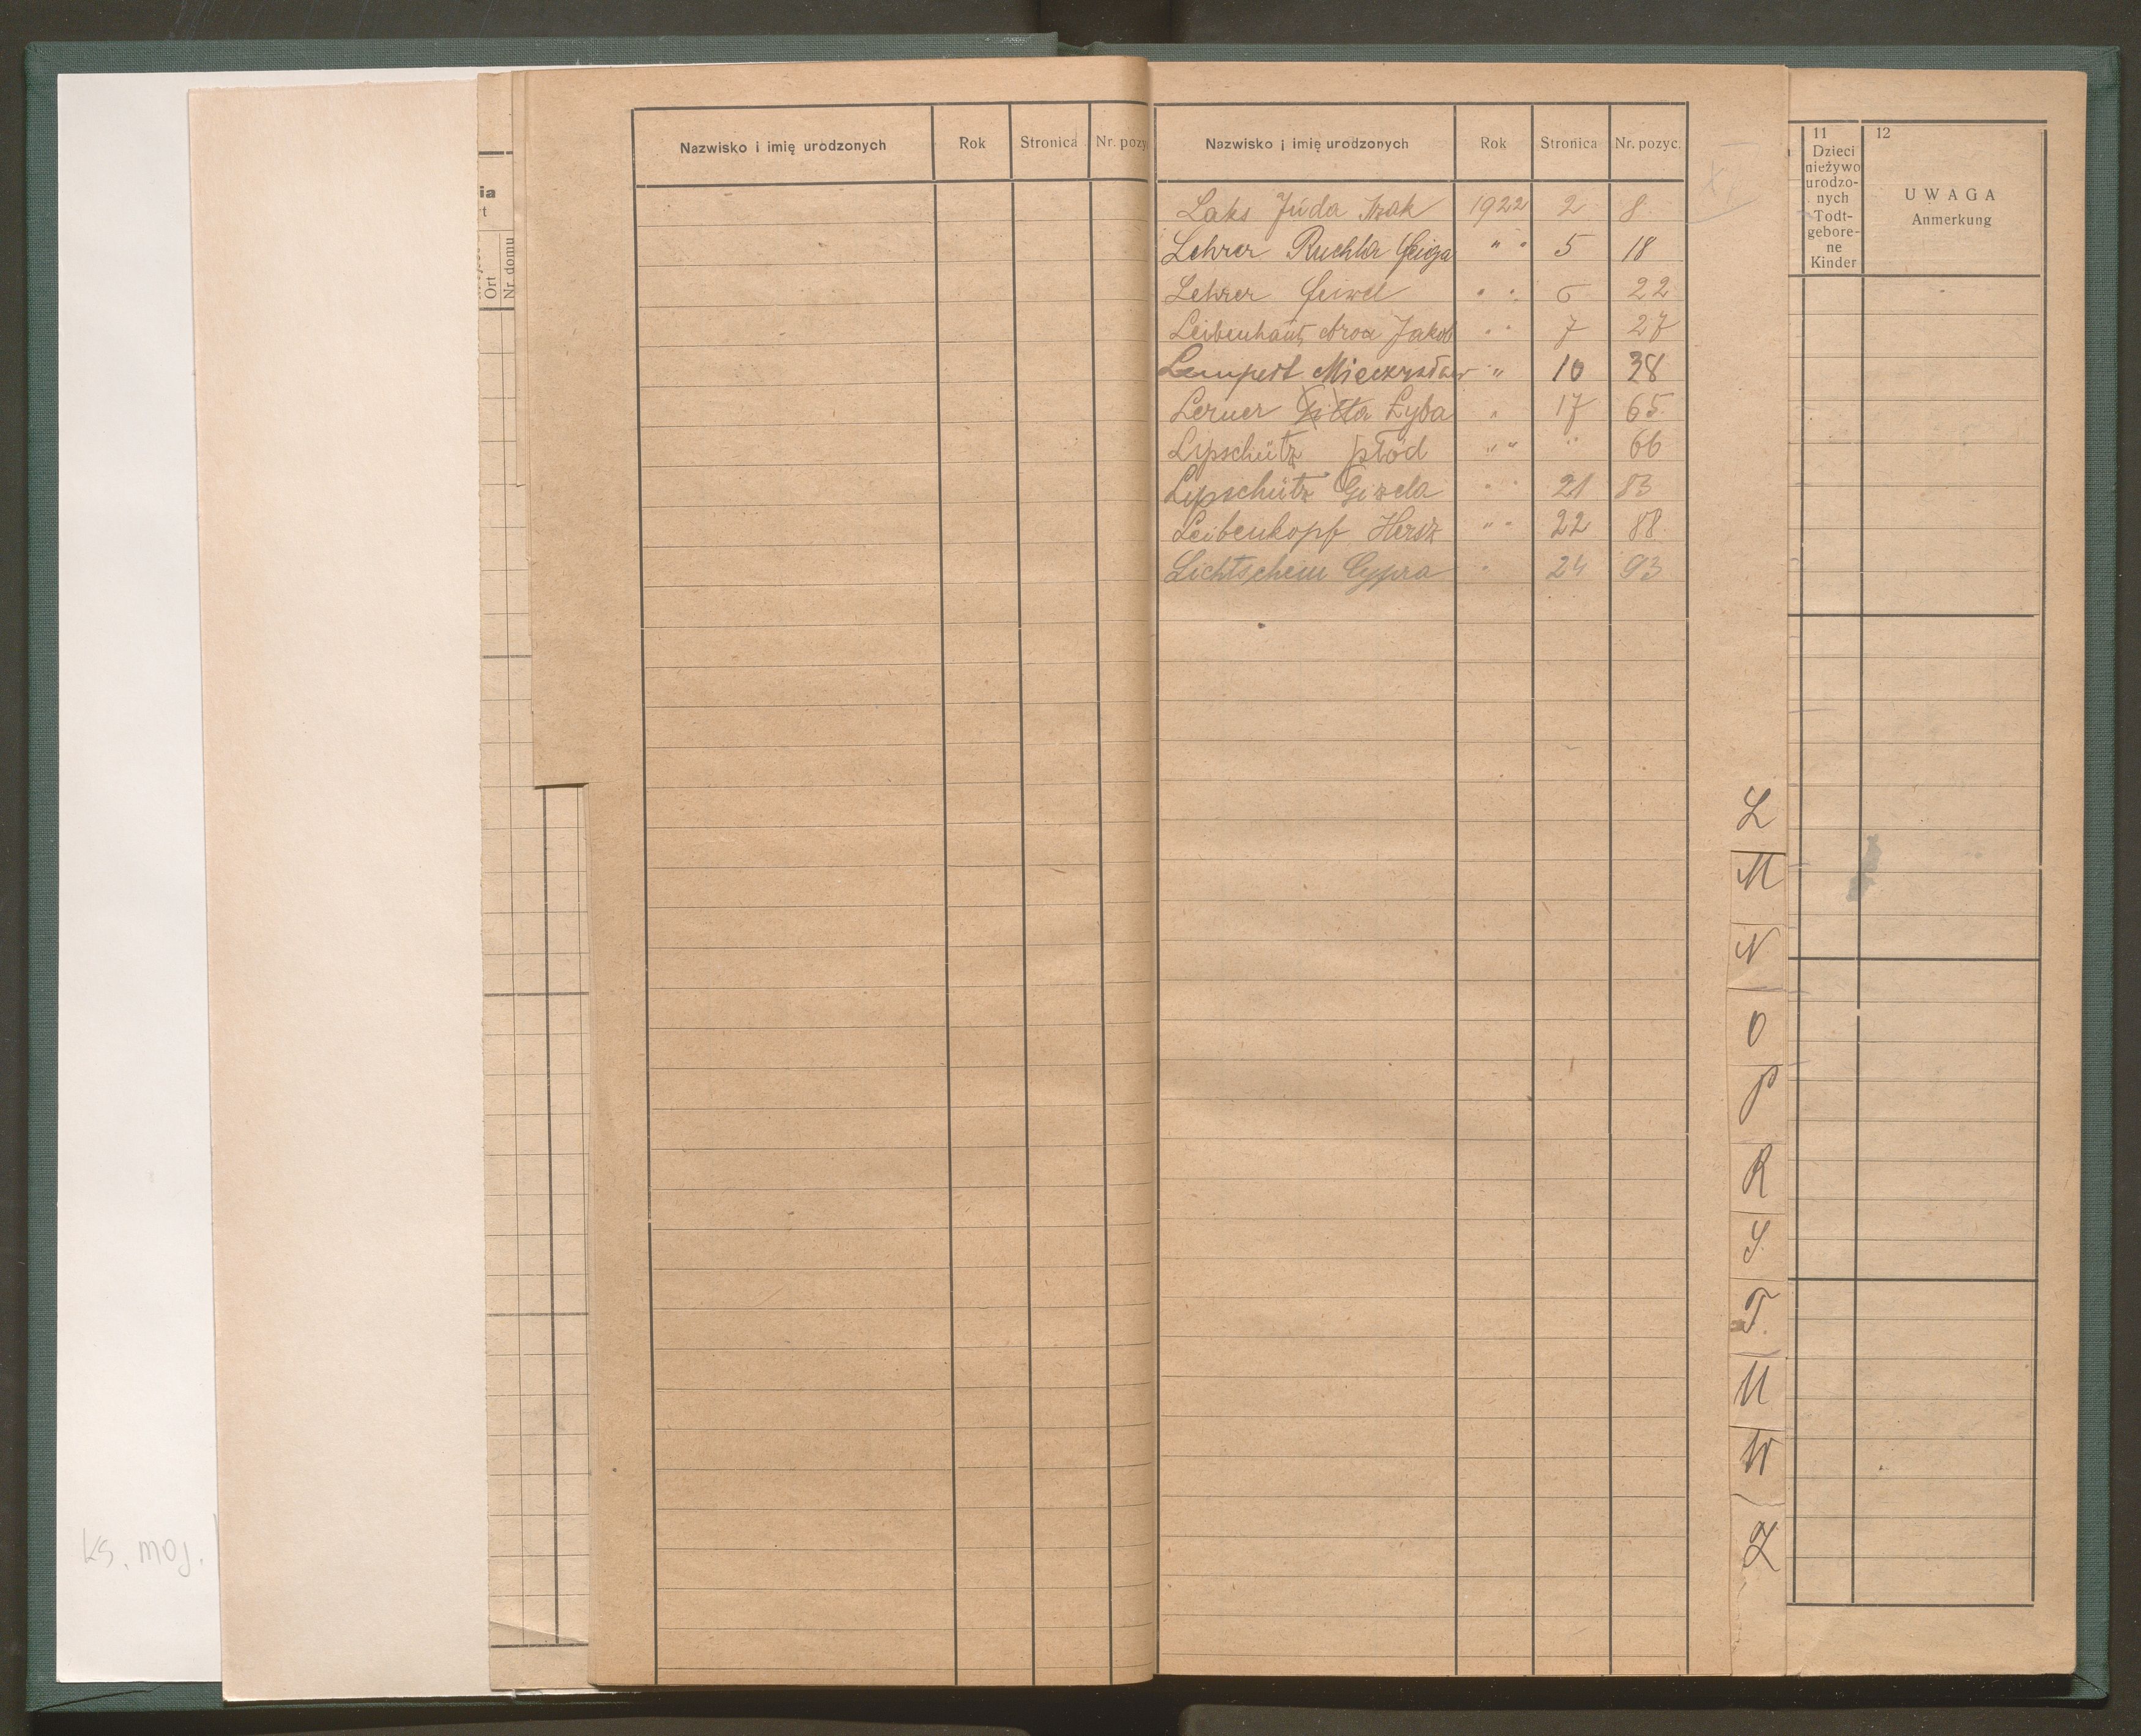 ia
t
Ort
Nr. domu
Nazwisko i imię urodzonych Rok Stronica Nr. pozy
Nazwisko i imię urodzonych Rok Stronica Nr. pozyc.
Laks Juda Izak 1922 2 8
Lehrer Ruchla Feiga " " 5 18
Lehrer Feiwel " " 6 22
Leibenhaut Aron Jakob " " 7 27
Lempert Mieczysław " 10 38
Lerner Gitta Łyba " 17 65
Lipschütz płód " " " 66
Lipschütz Gizela " " 21 83
Leibenkopf Hersz " " 22 88
Lichtschein Cypra " 24 93
L
M
N
O
P
R
S
T
U
W
Z
11
Dzieci
nieżywo
urodzo-
nych
Todt-
gebore-
ne
Kinder
12
UWAGA
Anmerkung
ks. moj.